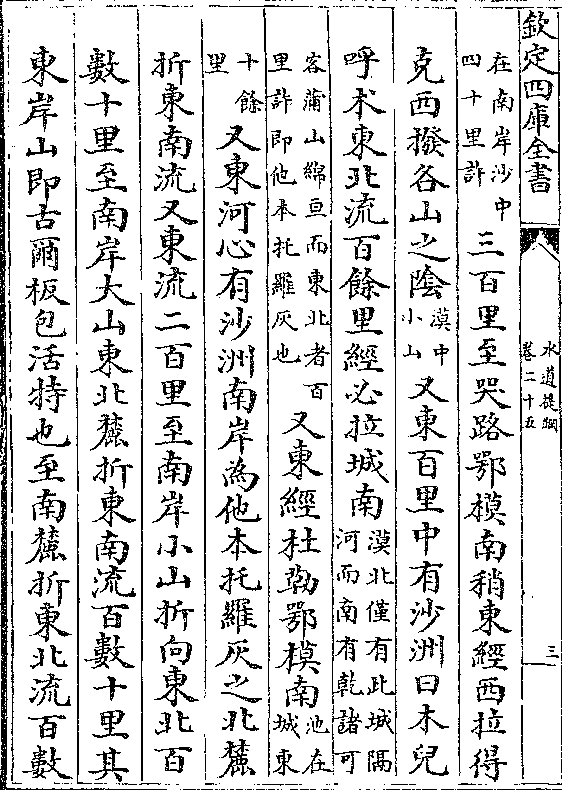 欽定四庫全書
水道提綱
卷二十五
三
在南岸沙中
四十里許
三百里至哭路鄂模南稍東經西拉得
克西撥各山之陰
漠中
小山
又東百里中有沙洲曰木兒
呼术東北流百餘里經必拉城南
漠北僅有此城隔
河而南有乾諸可
客蒲山綿亘而東北者百
里許即他本托羅灰也
又東經杜勒鄂模南
池在
城東
十餘
里
又東河心有沙洲南岸為他本托羅灰之北麓
折東南流又東流二百里至南岸小山折向東北百
數十里至南岸大山東北麓折東南流百數十里其
東岸山即古爾板包活特也至南麓折東北流百數